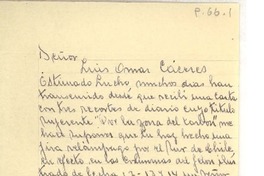 P. 66.1
Señor
Luis Omar Cáceres
Estimado Lucho, muchos días han
transcurrido desde que recibí una carta
con tres recortes de diario cuyo título
"Por la zona del carbón" me
hace suponer que has hecho una
jira relámpago por el sur de Chile
en efecto, en las columnas
de fecha 12-13 y 14 un Señor